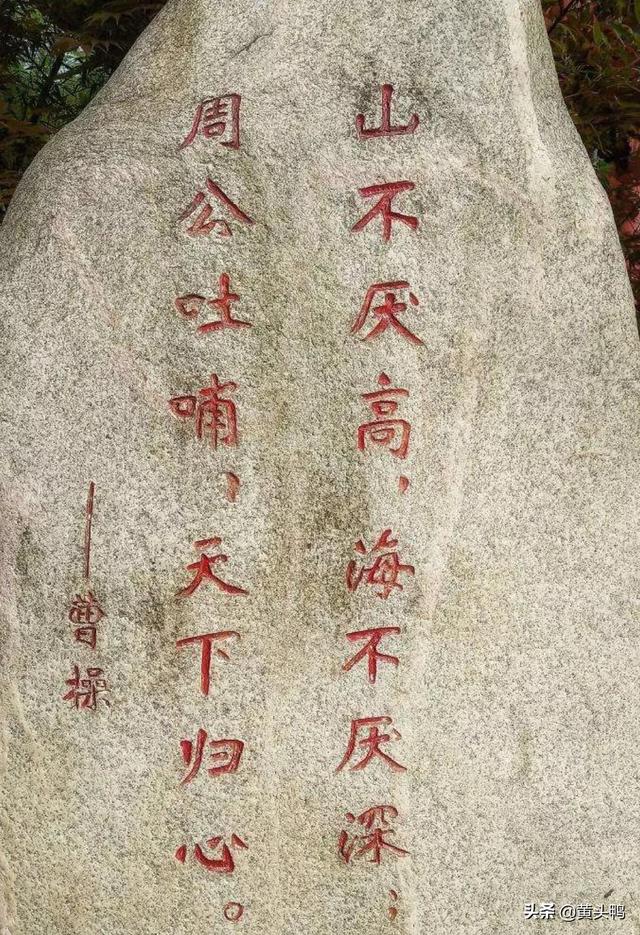 山不厌高，海不厌深；
周公吐哺，天下归心。
——曹操
头条 @黄头鸭